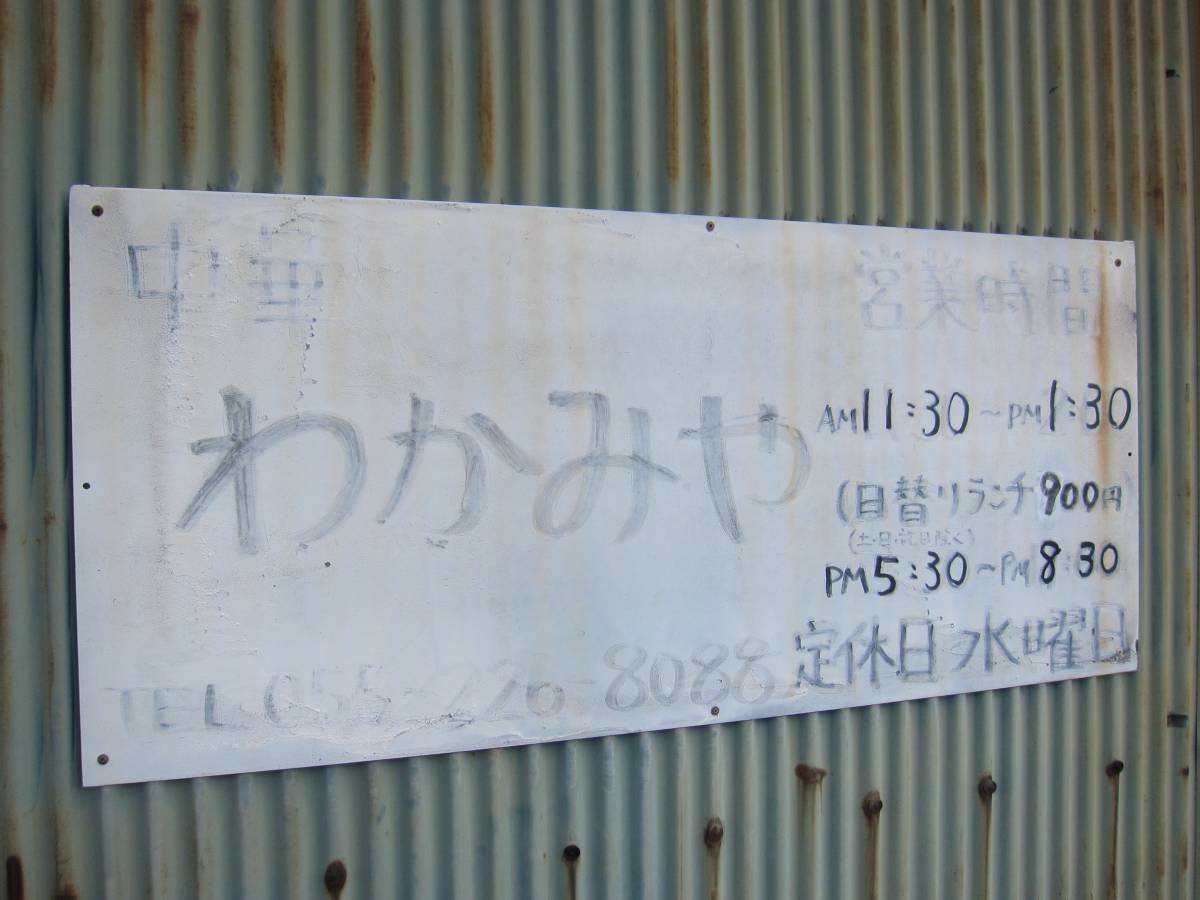 中華
わかみや
TEL 055-226-8088
営業時間
AM11:30~PM1:30
(日替りランチ900円
(土・日・祝日除く)
PM5:30~PM8:30
定休日 水曜日